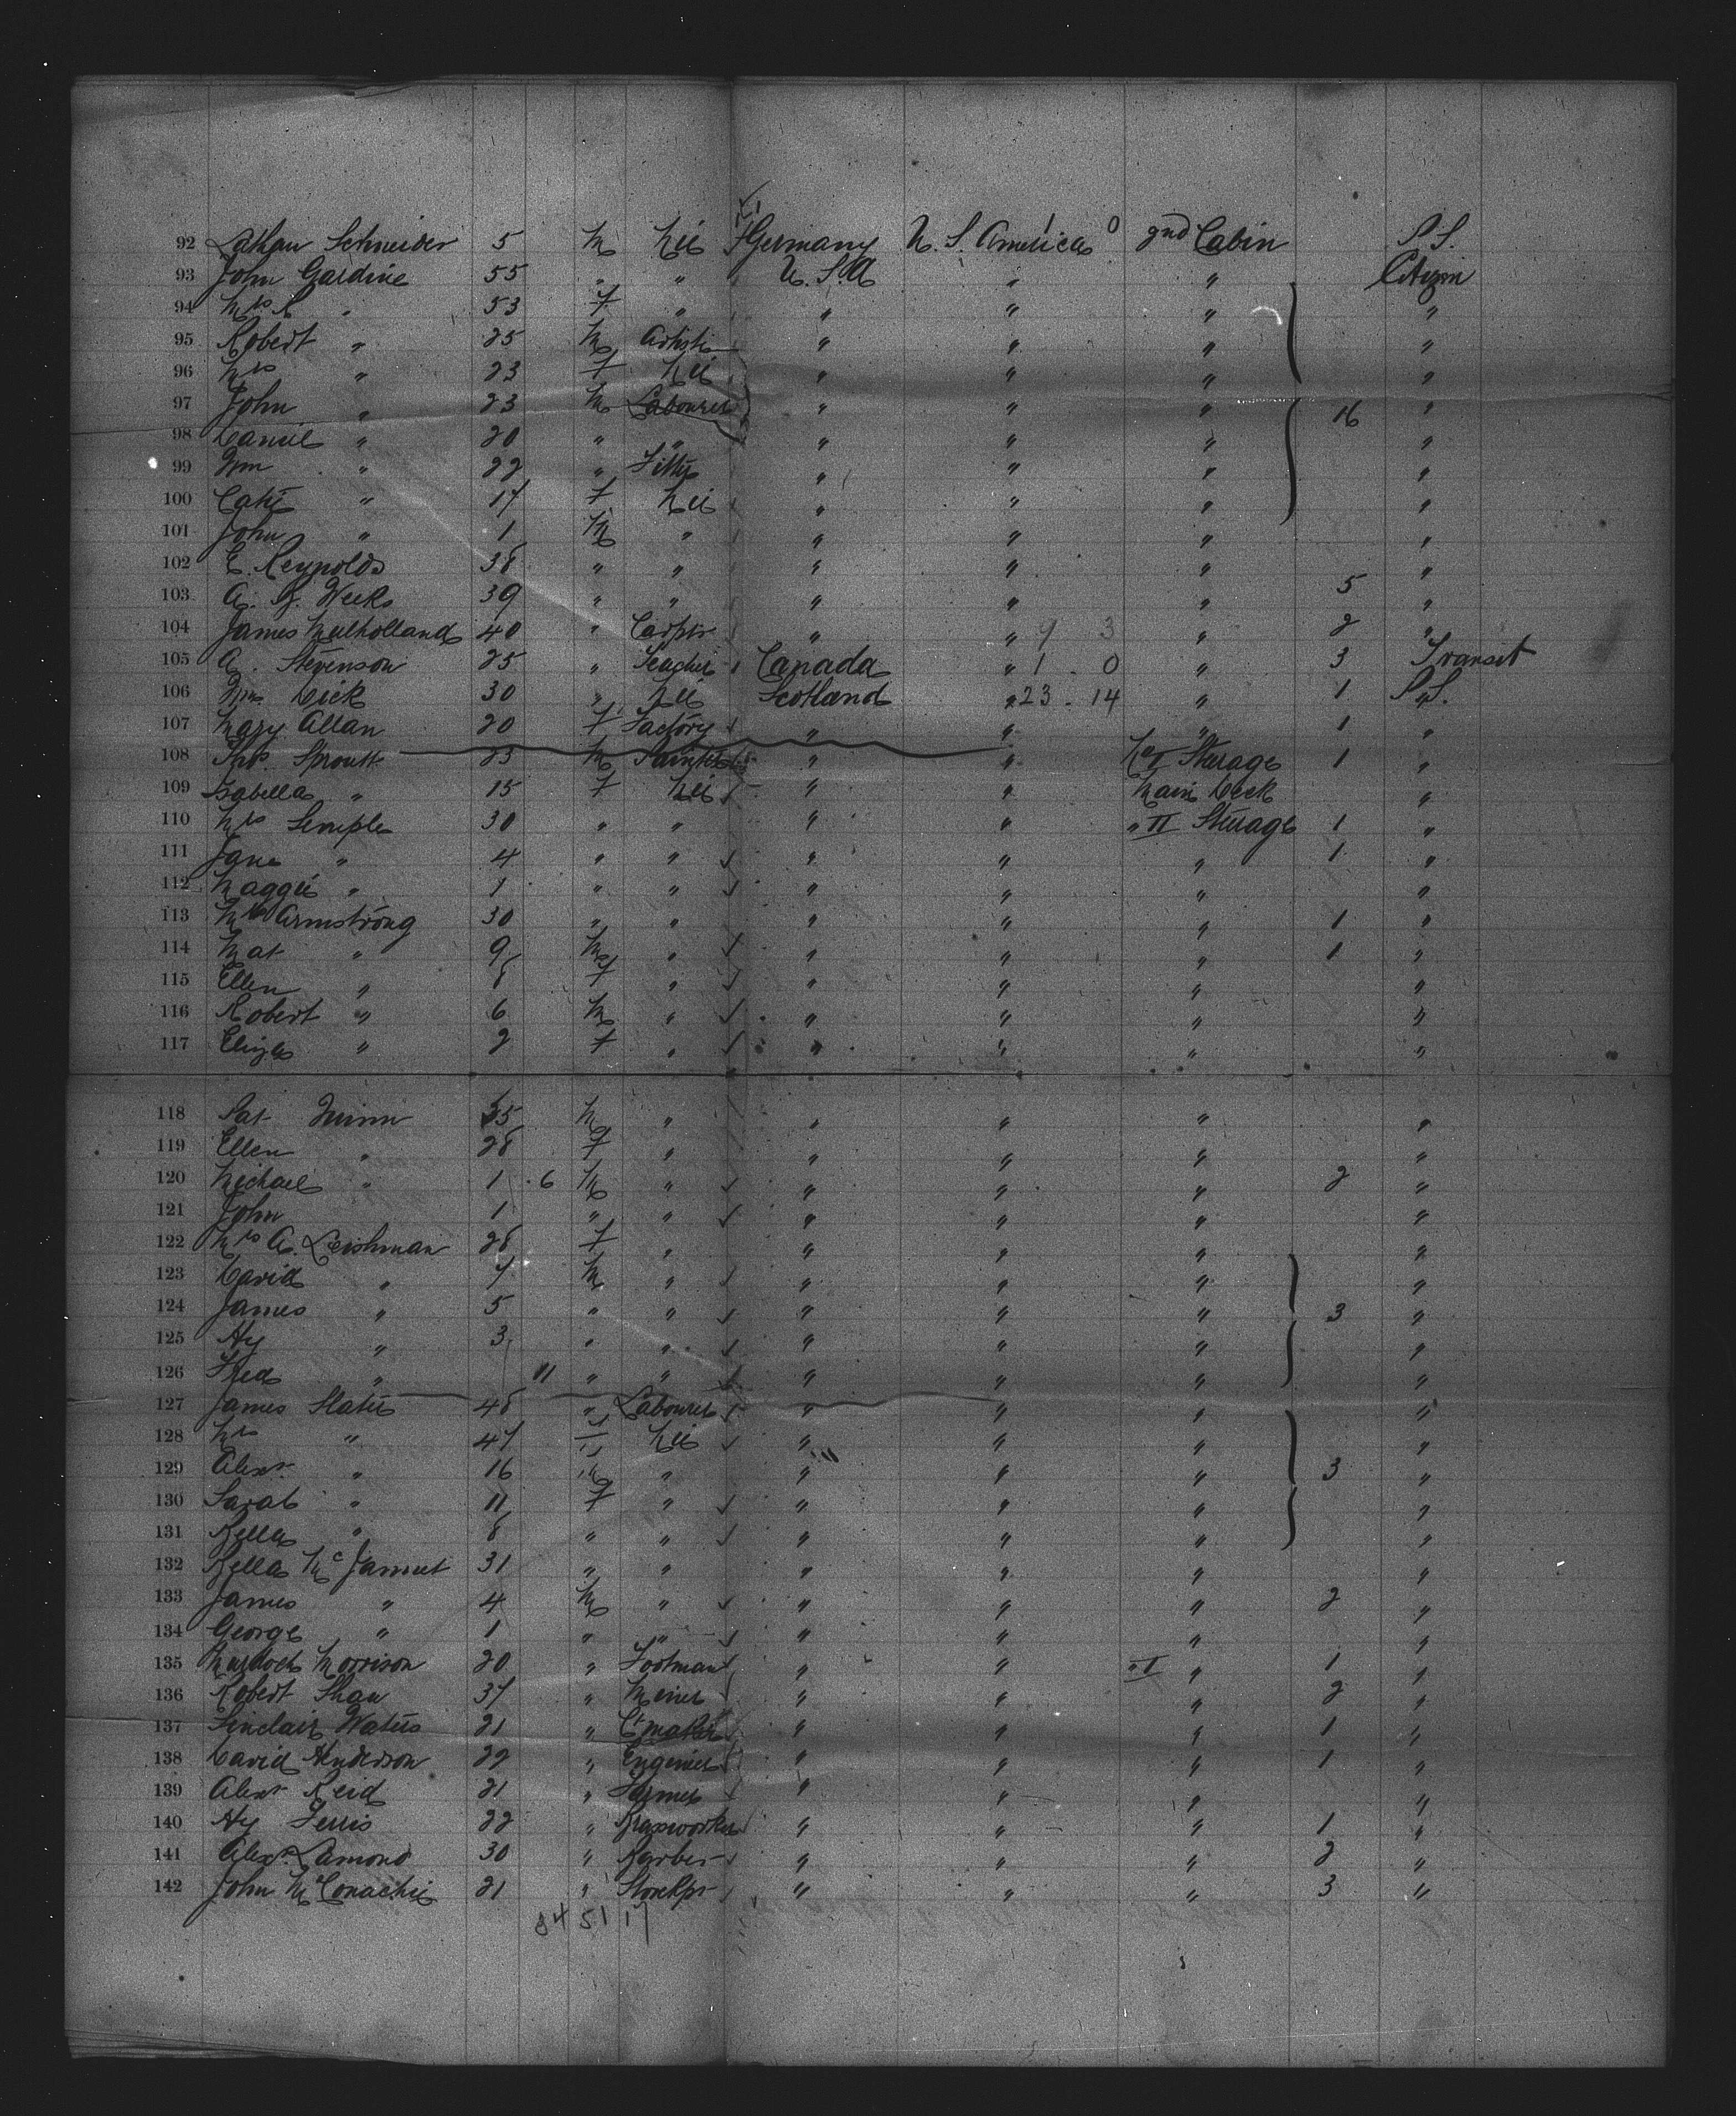 92 Schneider 5 M Nil Germany U. S. America 0 2nd Cabin P.S.
93 John Gardine 55 " " U.S.A " " Citizen
94 Mrs " 53 F " " " " "
95 Robert " 25 M Artist " " " "
96 Mrs " 23 F Nil " " " "
97 John " 23 M Labourer " " " 16 "
98 Daniel " 20 " " " " " "
99 Wm " 22 " Fitter " " " "
100 Catie " 17 F Nil " " " "
101 John " 1 M " " " " "
102 E. Reynolds 38 " " " " " "
103 A. Weeks 39 " " " " " 5 "
104 James Mulholland 40 " Carptr " " 9 3 " 2 "
105 A. Stevenson 25 " Teacher Canada " 1 . 0 " 3 Transit
106 Wm Dick 30 " Nil Scotland " 23 . 14 " 1 P.S.
107 Mary Allan 20 F Factory " " " 1 "
108 Thos. Sproutt 23 M Painter " " No I Sterage 1 "
109 Isabella " 15 F Nil " " Main Deck "
110 Mrs Semple 30 " " " " " II Sterage 1 "
111 Jane " 4 " " " " " 1 "
112 Maggie " 1 " " " " " "
113 Mrs Armstrong 30 " " " " " 1 "
114 Mat " 9 M " " " " 1 "
115 Ellen " 8 F " " " " "
116 Robert " 6 M " " " " "
117 Eliza " 2 F " " " " "
118 Pat Quinn 35 M " " " " "
119 Ellen " 28 F " " " " "
120 Michael " 1 . 6 M " " " " 2 "
121 John 1 " " " " " "
122 Mrs A. Leishman 28 F " " " " "
123 David " 7 M " " " " "
124 James " 5 " " " " " 3 "
125 Hy " 3 " " " " " "
126 Fred " 11 " " " " " "
127 James Slater 48 " Labourer " " " "
128 Mrs " 47 F Nil " " " "
129 Alexr " 16 M " " " " 3 "
130 Sarah " 11 F " " " " "
131 Bella " 8 " " " " " "
132 Bella McJannet 31 " " " " " "
133 James " 4 M " " " " 2 "
134 George " 1 " " " " " "
135 Murdoch Morrison 20 " Footman " " " I " 1 "
136 Robert Shaw 37 " Miner " " " 2 "
137 Sinclair Waters 21 " Ct maker " " " 1 "
138 David Henderson 22 " Engenier " " " 1 "
139 Alexr Reid 21 " Farmer " " " "
140 Hy Ferris 22 " Brassworker " " " 1 "
141 Alexr Lamond 30 " Barber " " " 2 "
142 John McConachie 21 " Storekpr " " " 3 "
34 51 17